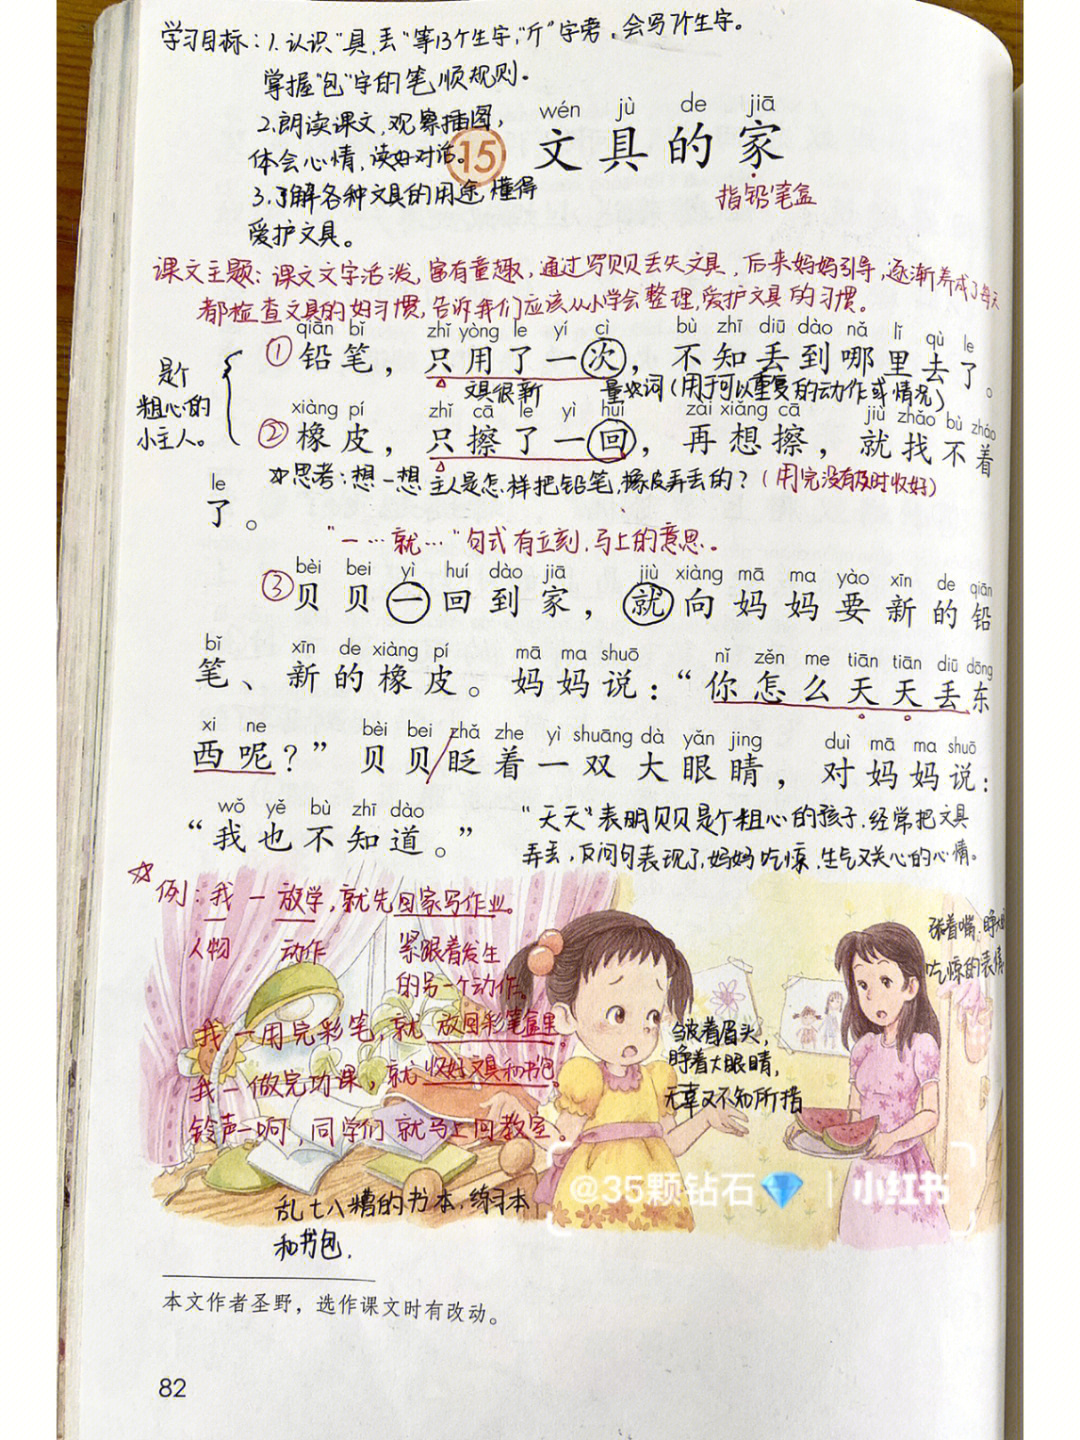 学习目标：1.认识“具、丢”等13个生字，“斤”字旁，会写7个生字。
掌握“包”字的笔顺规则。
2.朗读课文，观察插图，
体会心情，读好对话。
3.了解各种文具的用途，懂得
爱护文具。
wén jù de jiā
15 文具的家
指铅笔盒
课文主题：课文文字活泼，富有童趣，通过写贝贝丢失文具，后来妈妈引导，逐渐养成了每天
都检查文具的好习惯，告诉我们应该从小学会整理，爱护文具的习惯。
qiān bǐ zhǐ yòng le yí cì bù zhī diū dào nǎ lǐ qù le
①铅笔，只用了一次，不知丢到哪里去了。
文具很新 量次词（用于可以重复的动作或情况）
是个
粗心的
小主人。
xiàng pí zhǐ cā le yì huí zài xiǎng cā jiù zhǎo bù zháo
②橡皮，只擦了一回，再想擦，就找不着
思考：想一想主人是怎样把铅笔，橡皮弄丢的？（用完没有及时收好）
le
了。
“一…就…”句式有立刻，马上的意思。
bèi bei yì huí dào jiā jiù xiàng mā ma yào xīn de qiān
③贝贝一回到家，就向妈妈要新的铅
bǐ xīn de xiàng pí mā ma shuō nǐ zěn me tiān tiān diū dōng
笔、新的橡皮。妈妈说：“你怎么天天丢东
xi ne bèi bei zhǎ zhe yì shuāng dà yǎn jing duì mā ma shuō
西呢？”贝贝眨着一双大眼睛，对妈妈说：
wǒ yě bù zhī dào
“我也不知道。”
“天天”表明贝贝是个粗心的孩子，经常把文具
弄丢，反问句表现了，妈妈吃惊，生气又关心的心情。
☆例：我一放学，就先回家写作业。
人物 动作 紧跟着发生
的另一个动作。
我一用完彩笔，就放回彩笔盒里。
我一做完功课，就收好文具和书包。
铃声一响，同学们就马上回教室。
张着嘴，睁大
吃惊的表情
皱着眉头，
睁着大眼睛，
无辜又不知所措
乱七八糟的书本，练习本
和书包.
@35颗钻石💎 | 小红书
本文作者圣野，选作课文时有改动。
82